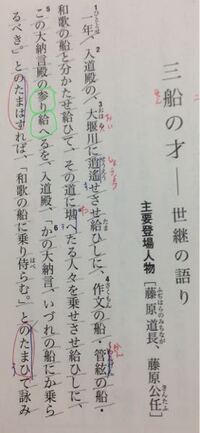 三船の才――世継の語り
主要登場人物［藤原道長、藤原公任］
ふぢはらのみちなが
きんたふ
一年、入道殿の、大堰川に逍遥せさせ給ひしに、作文の船・管絃の船・
和歌の船と分かたせ給ひて、その道に堪へたる人々を乗せさせ給ひしに、
この大納言殿の参り給へるを、入道殿、「かの大納言、いづれの船にか乗ら
るべき。」とのたまはすれば、「和歌の船に乗り侍らむ。」とのたまひて詠み